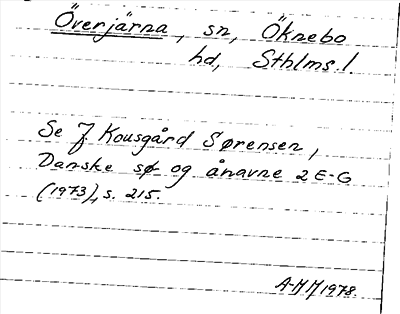 Överjärna, sn, Öknebo
hd, Sthlms l.
Se J. Kousgård Sørensen,
Danske sø- og ånavne 2 E-G
(1973), s. 215.
A-M H 1978.